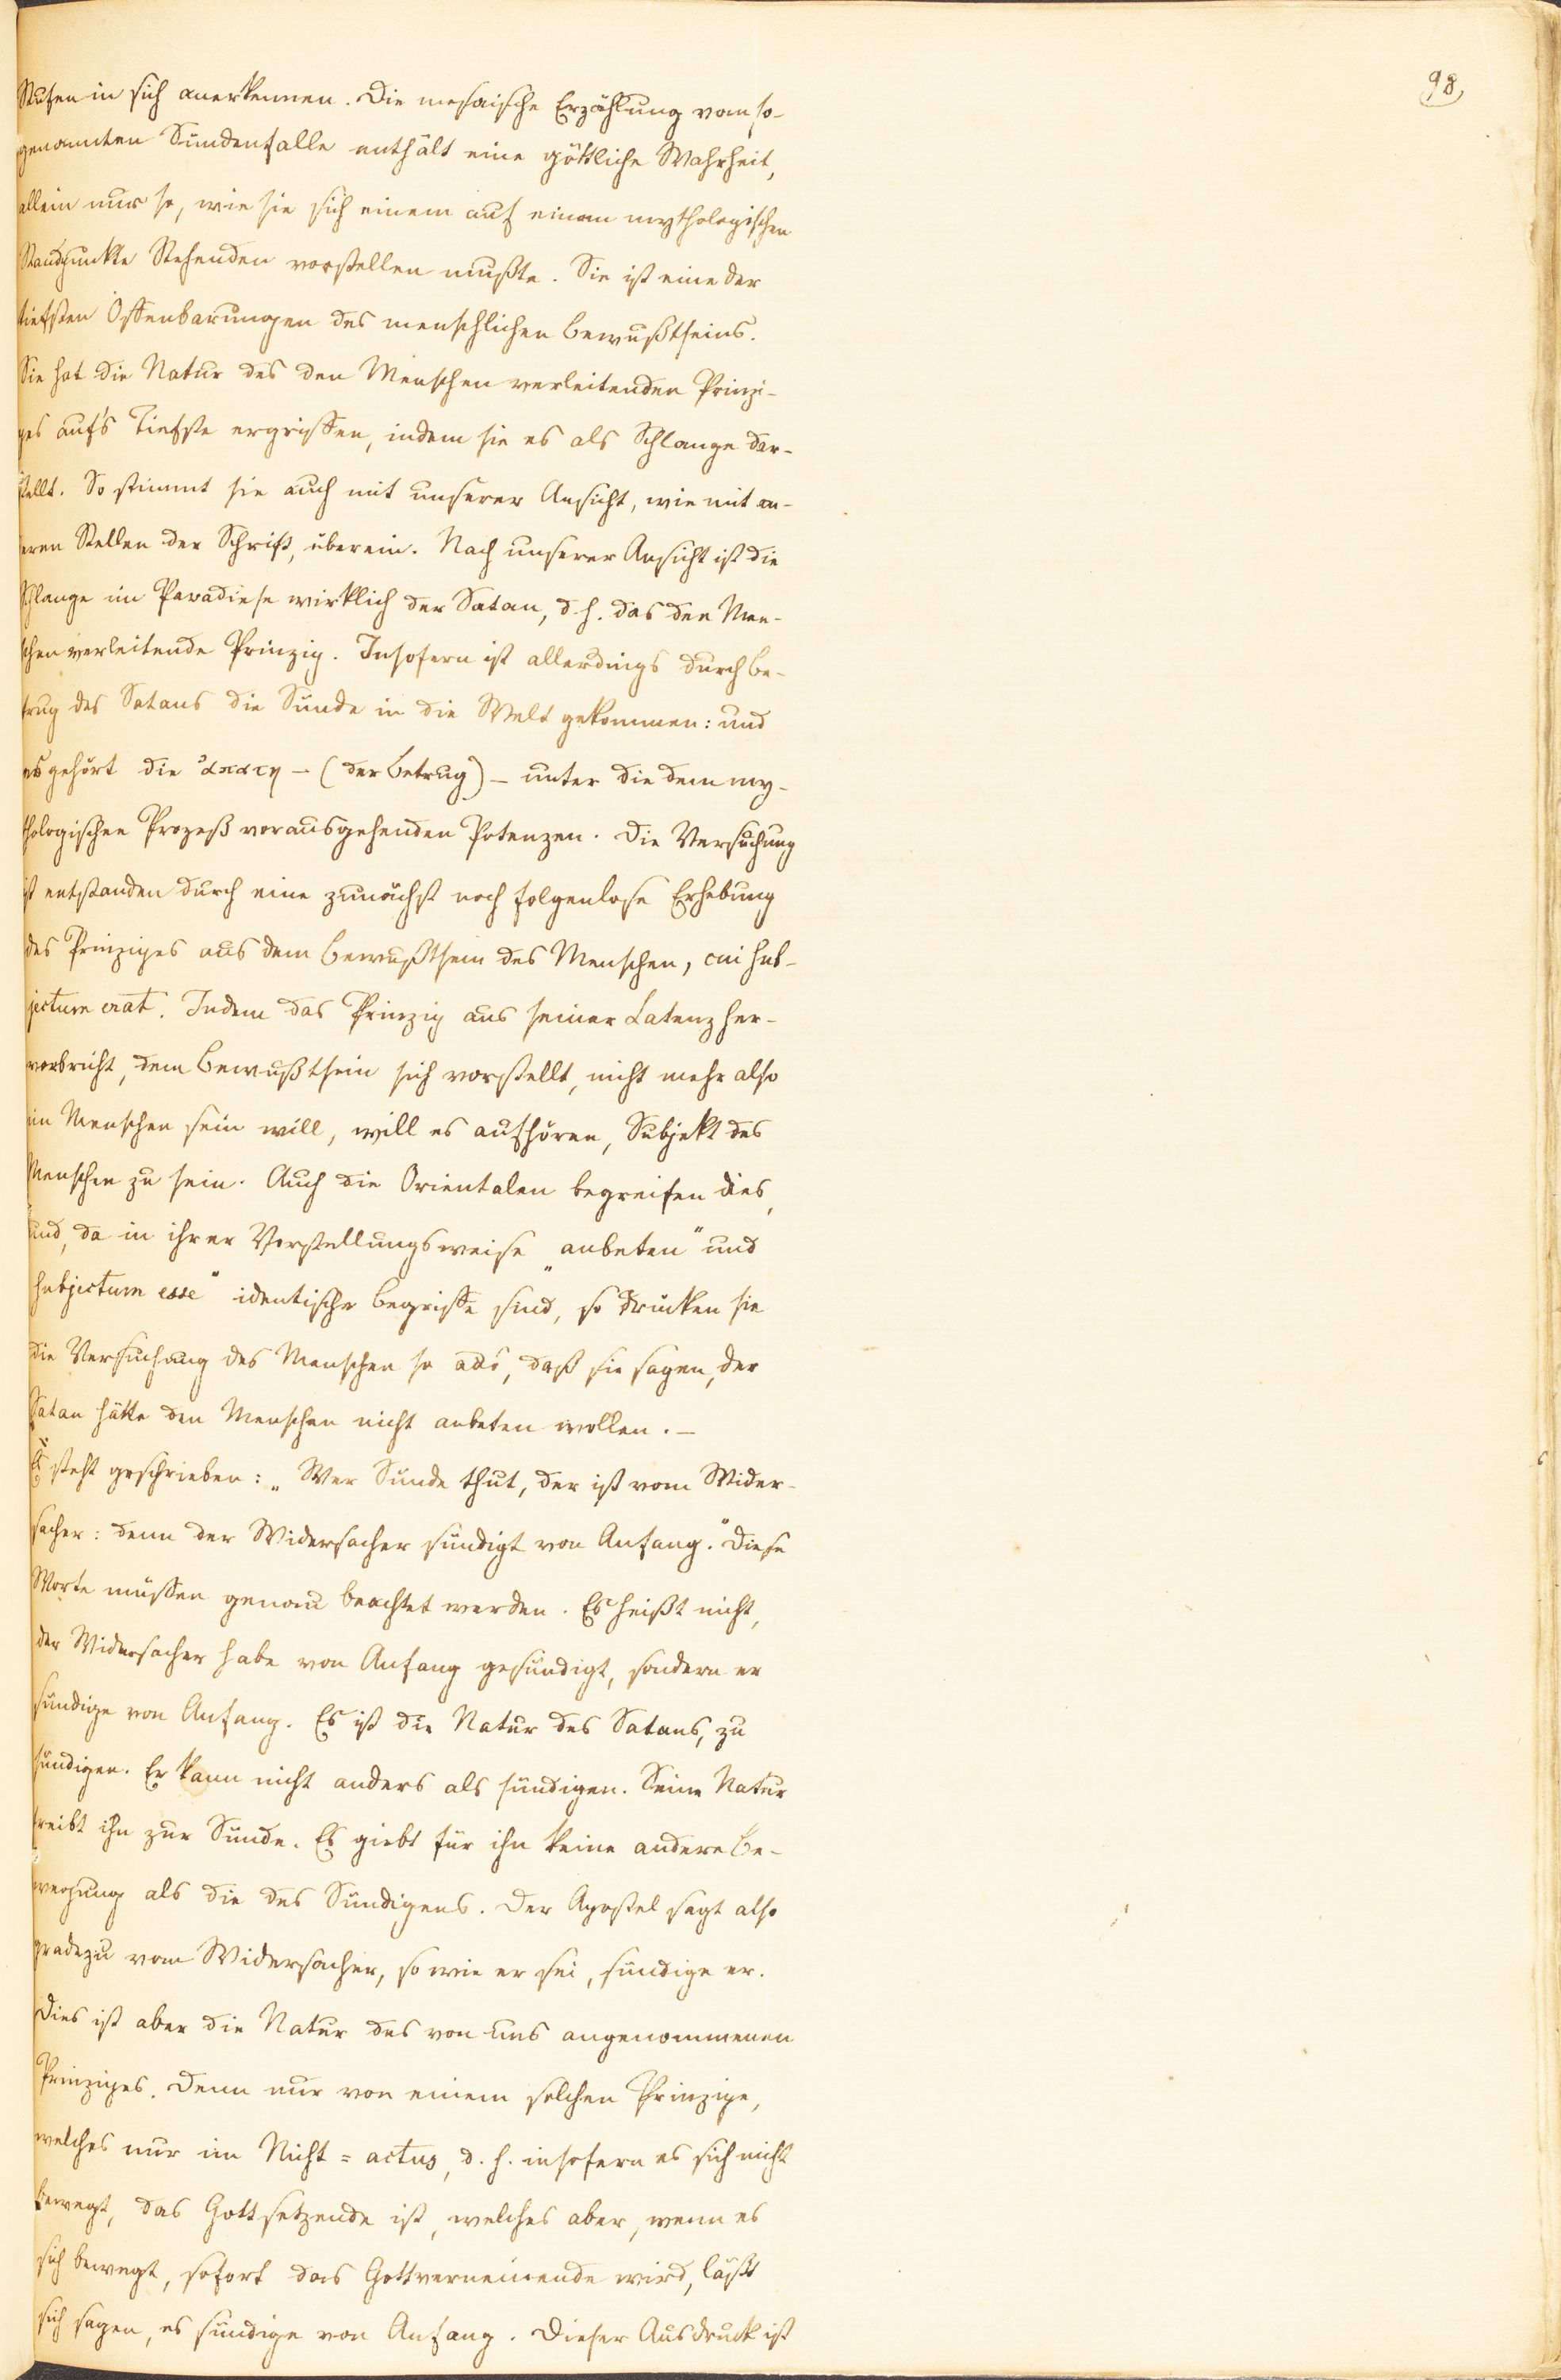 98
Stufen in sich anerkennen. Die mosaische Erzählung vom so-
genannten Sündenfalle enthält eine göttliche Wahrheit,
allein nur so, wie sie sich einem auf einem mythologischen
Standpunkte Stehenden vorstellen mußte. Sie ist eine der
tiefsten Offenbarungen des menschlichen Bewußtseins.
Sie hat die Natur des den Menschen verleitenden Prinzi-
pes auf's Tiefste ergriffen, indem sie es als Schlange dar-
stellt. So stimmt sie auch mit unserer Ansicht, wie mit an-
deren Stellen der Schrift, überein. Nach unserer Ansicht ist die
Schlange im Paradiese wirklich der Satan, d. h. das den Men-
schen verleitende Prinzip. Insofern ist allerdings durch Be-
trug des Satans die Sünde in die Welt gekommen: und
es gehört die ἀπατη – (der Betrug) – unter die dem my-
thologischen Prozeß vorausgehenden Potenzen. Die Versuchung
ist entstanden durch eine zunächst noch folgenlose Erhebung
des Prinzipes aus dem Bewußtsein des Menschen, cui sub-
jectum erat. Indem das Prinzip aus seiner Latenz her-
vorbricht, dem Bewußtsein sich vorstellt, nicht mehr also
im Menschen sein will, will es aufhören, Subjekt des
Menschen zu sein. Auch die Orientalen begreifen dies,
und, da in ihrer Vorstellungsweise „anbeten" und
subjectum esse" identische Begriffe sind, so drücken sie
die Versuchung des Menschen so aus, daß sie sagen, der
Satan hätte den Menschen nicht anbeten wollen. –
Es steht geschrieben: „Wer Sünde thut, der ist vom Wider-
sacher: denn der Widersacher sündigt von Anfang." Diese
Worte müssen genau beachtet werden. Es heißt nicht,
der Widersacher habe von Anfang gesündigt, sondern er
sündige von Anfang. Es ist die Natur des Satans, zu
sündigen. Er kann nicht anders als sündigen. Seine Natur
treibt ihn zur Sünde. Es giebt für ihn keine andere Be-
wegung als die des Sündigens. Der Apostel sagt also
gradezu vom Widersacher, so wie er sei, sündige er.
Dies ist aber die Natur des von uns angenommenen
Prinzipes. Denn nur von einem solchen Prinzipe,
welches nur im Nicht=actus, d. h. insofern es sich nicht
bewegt, das Gottsetzende ist, welches aber, wenn es
sich bewegt, sofort das Gottverneinende wird, läßt
sich sagen, es sündige von Anfang. Dieser Ausdruck ist